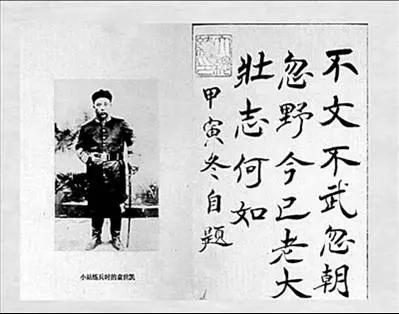 不文不武忽朝
忽野今已老大
壮志何如
甲寅冬自题
小站练兵时的袁世凯